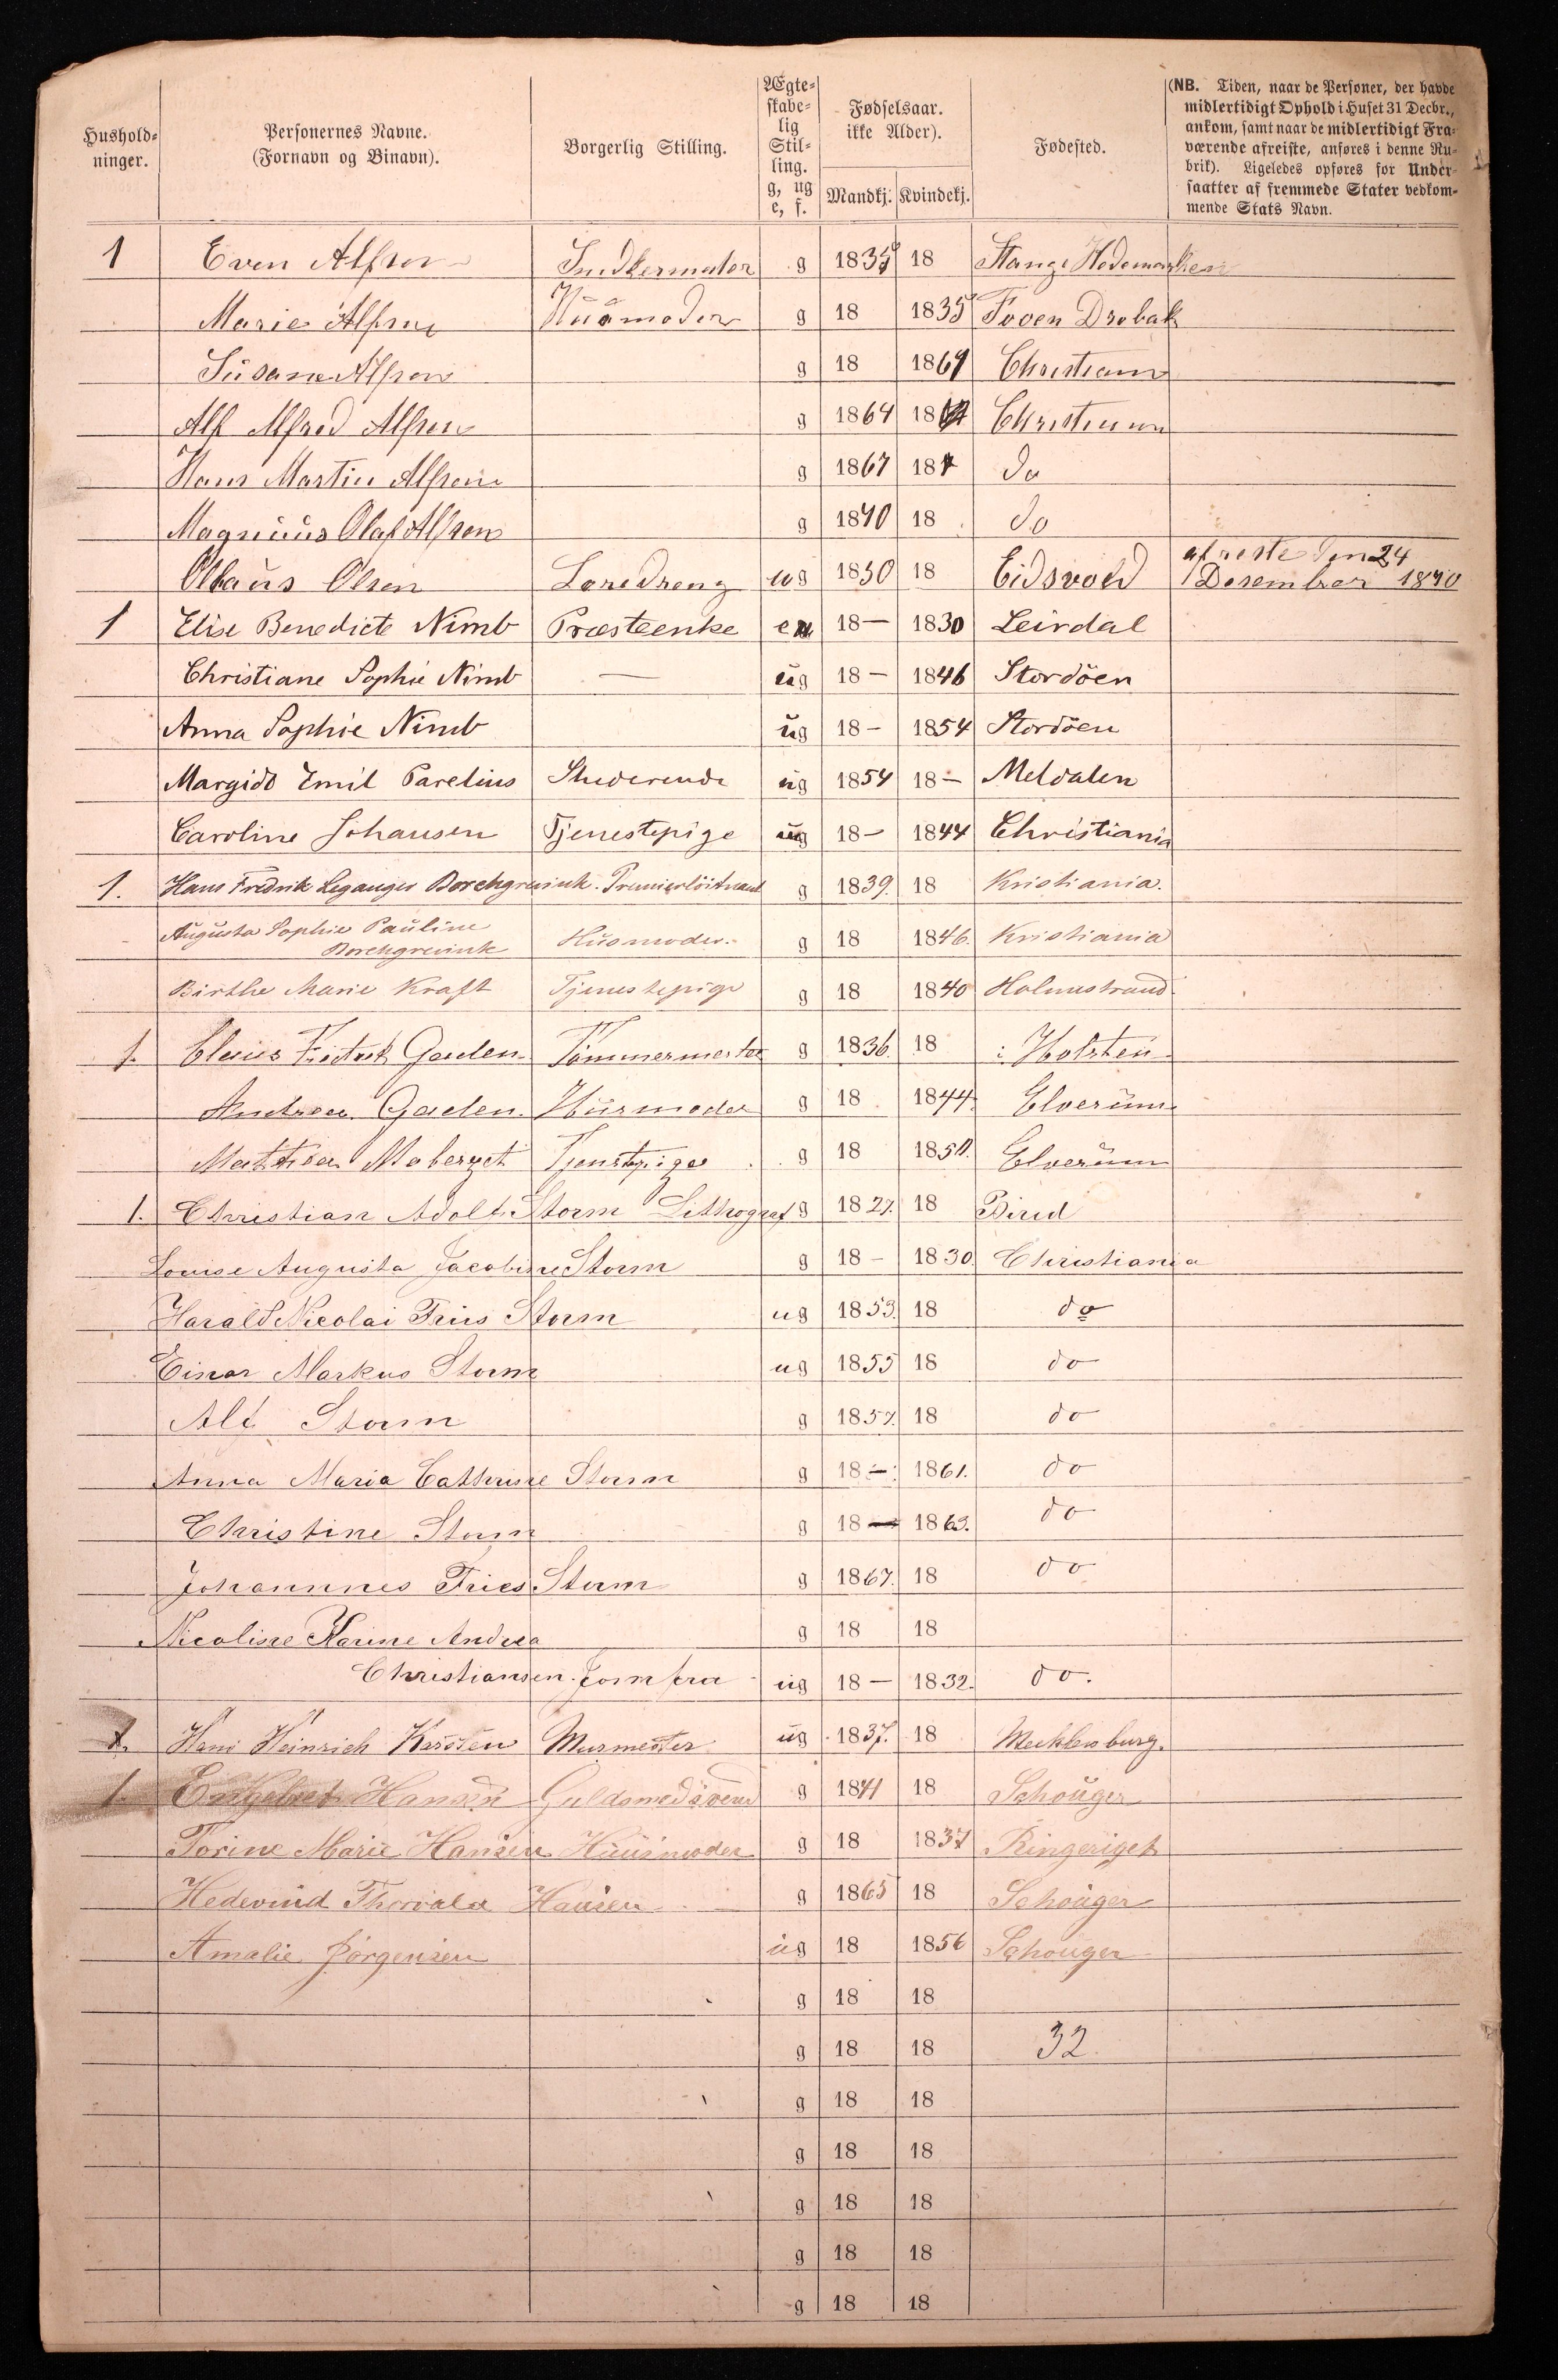 Hushold-
ninger.
Personernes Navne.
(Fornavn og Binavn).
Borgerlig Stilling.
Ægte-
skabe-
lig
Stil-
ling.
g, ug
e, f.
Fødselsaar.
ikke Alder).
Mandkj. Kvindekj.
Fødested.
(NB. Tiden, naar de Personer, der havde
midlertidigt Ophold i Huset 31 Decbr.,
ankom, samt naar de midlertidigt Fra-
værende afreiste, anføres i denne Ru-
brik). Ligeledes opføres for Under-
saatter af fremmede Stater vedkom-
mende Stats Navn.
1 Even Alfsen g 1835 18 Stange Hedemarken
Marie Alfsen Huusmoder g 18 1835 Foven Drøbak
Susane Alfsen g 18 1861 Christiania
Alf Alfred Alfsen g 1864 18 Christiania
Hans Martin Alfsen g 1867 18 do
Magnuus Olaf Alfsen g 1870 18 do
Olbaus Olsen Læredreng ug 1850 18 Eidsvold afreste den 24
Desember 1870
1 Elise Benedicte Nimb Præsteenke e 18— 1830 Leirdal
Christiane Sophie Nimb — ug 18— 1846 Stordöen
Anna Sophie Nimb ug 18— 1854 Stordöen
Margido Emil Parelius Studerende ug 1854 18— Meldalen
Caroline Johansen Tjenestepige ug 18— 1844 Christiania
1. Hans Fredrik Leganger Borchgrevink. Premierlöitnant g 1839. 18 Kristiania.
Augusta Sophie Pauline
Borchgrevink Husmoder. g 18 1846. Kristiania
Birthe Marie Kraft Tjenestepige g 18 1840 Holmestrand
1. Claus Fredrek Gaden Tömmermester g 1836. 18 i Holsten
Andrea Gaden. Husmoder g 18 1844. Elverum
Mathea Moberget Tjenstepige g 18 1850. Elverum
1. Christian Adolf Storm Lithograf g 1827. 18 Birid
Louise Augusta Jacobine Storm g 18— 1830. Christiania
Harald Nicolai Friis Storm ug 1853. 18 do
Einar Markus Storm ug 1855 18 do
Alf Storm g 1857. 18 do
Anna Maria Cathrine Storm g 18— 1861. do
Christine Storm g 18— 1863. do
Johannnes Fries Storm g 1867. 18 do
Nicoline Karine Andrea g 18 18
Christiansen. Jomfru ug 18— 1832. do.
1. Hans Heinrich Karsten Murmester ug 1837. 18 Mecklenburg.
1. Engebret Hansen Guldsmedsvend g 1841 18 Schouger
Torine Marie Hansen Huusmoder g 18 1837 Ringeriget
Hedevind Thorvald Hansen g 1865 18 Schouger
Amalie Jörgensen ug 18 1856 Schouger
g 18 18
g 18 18 32
g 18 18
g 18 18
g 18 18
g 18 18
g 18 18